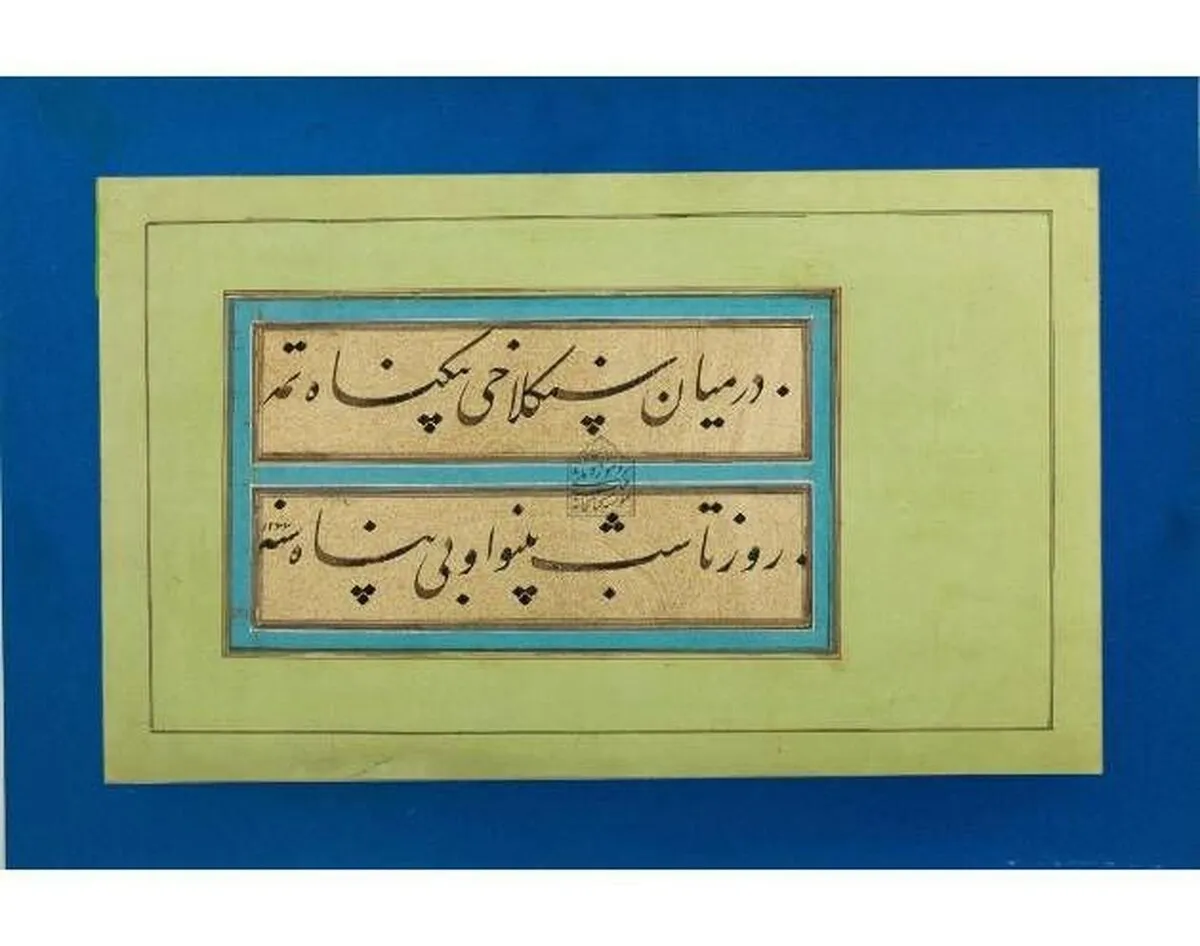 در میان سنگلاخی بیگناه تمه
روز تا شب بینوا و بی پناه سنه